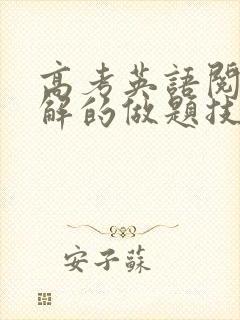 高考英語閱
解的做題技
安子蘇